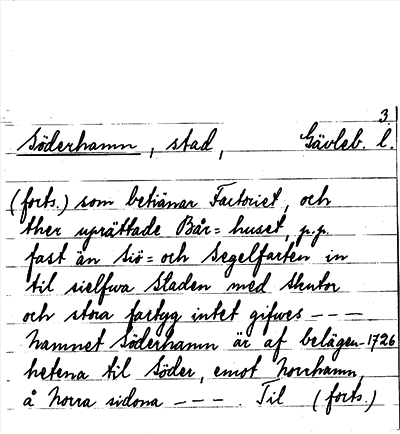 3.
Söderhamn, stad, Gävleb. l.
(forts.) som betiänar Factoriet, och
ther uprättade Bår=huset, p.p.
fast än siö= och segelfarten in
til sielfwa staden med skutor
och stora fartyg intet gifwes ---
hamnet Söderhamn är af belägen- 1726
hetena til Söder, emot horrhamn,
å horra sidona ---. Til (forts.)